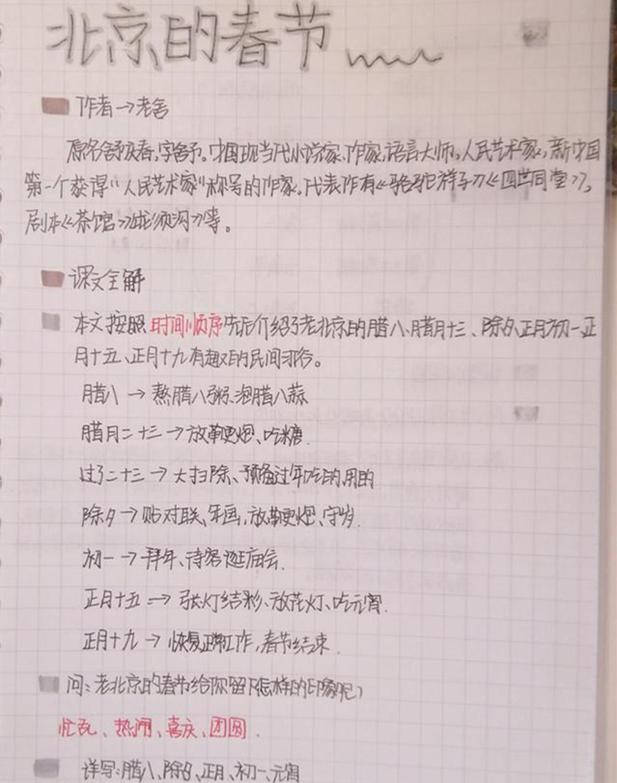 北京的春节
作者→老舍
原名舒庆春,字舍予。中国现当代小说家、作家,语言大师,人民艺术家,新中国
第一个获得“人民艺术家”称号的作家。代表作有《骆驼祥子》《四世同堂》,
剧本《茶馆》《龙须沟》等。
课文全解
本文按照时间顺序先后介绍了老北京的腊八、腊月十三、除夕、正月初一、正
月十五、正月十九有趣的民间习俗。
腊八→熬腊八粥、泡腊八蒜
腊月二十三→放鞭炮、吃糖.
过了二十三→大扫除、预备过年吃的用的
除夕→贴对联、年画,放鞭炮、守岁.
初一→拜年、待客逛庙会.
正月十五→张灯结彩、放花灯、吃元宵.
正月十九→恢复正常工作,春节结束.
问:老北京的春节给你留下怎样的印象呢?
忙乱、热闹、喜庆、团圆.
详写:腊八、除夕、正月、初一、元宵